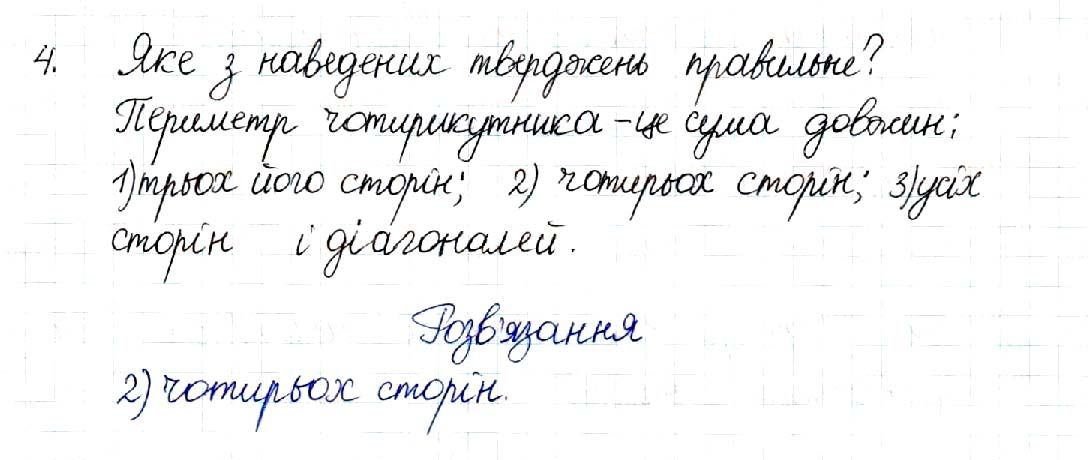 4. Яке з наведених тверджень правильне?
Периметр чотирикутника – це сума довжин:
1) трьох його сторін; 2) чотирьох сторін; 3) усіх
сторін і діагоналей.
Розв'язання
2) чотирьох сторін.